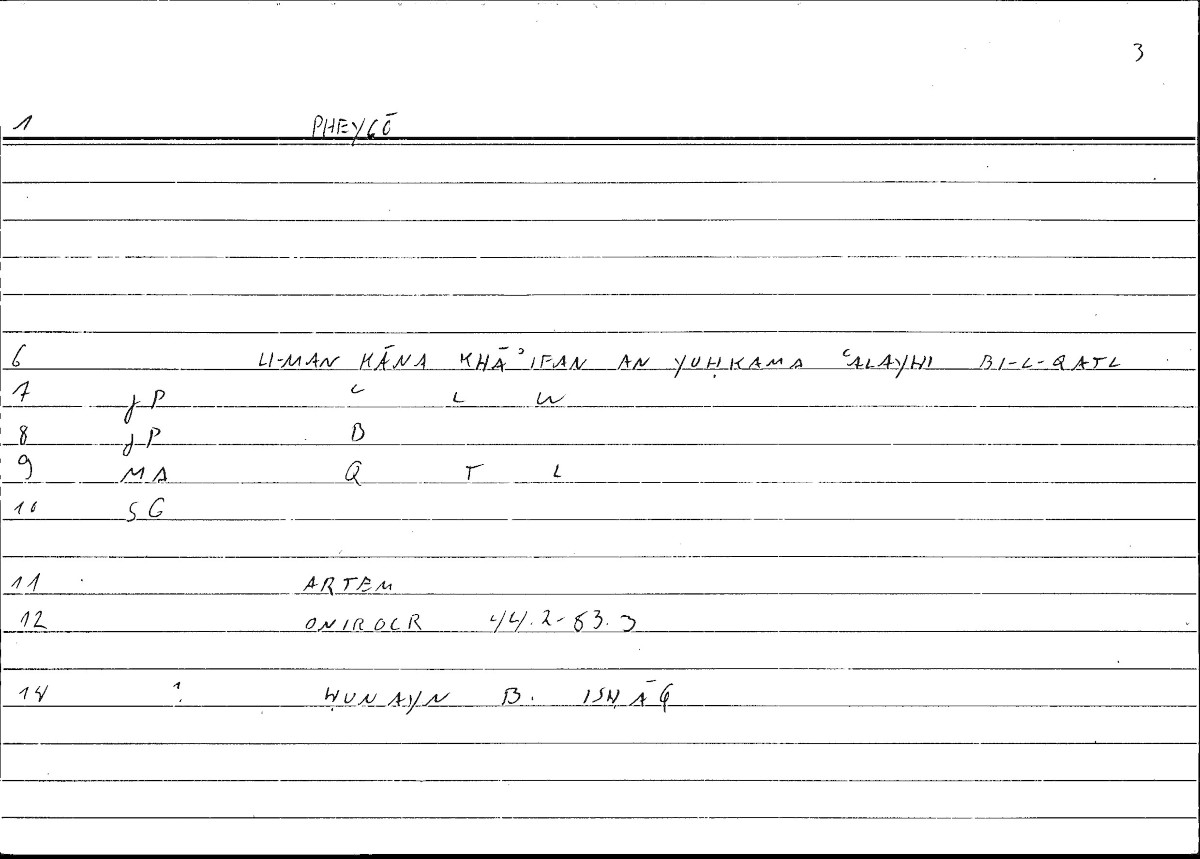 3
1 PHEYGŌ
6 LI-MAN KĀNA KHĀʾIFAN AN YUḤKAMA ʿALAYHI BI-L-QATL
7 JP ʿ L W
8 JP B
9 MA Q T L
10 SG
11 ARTEM
12 ONIROCR 44.2-
14 ? ḤUNAYN B. ISḤĀQ